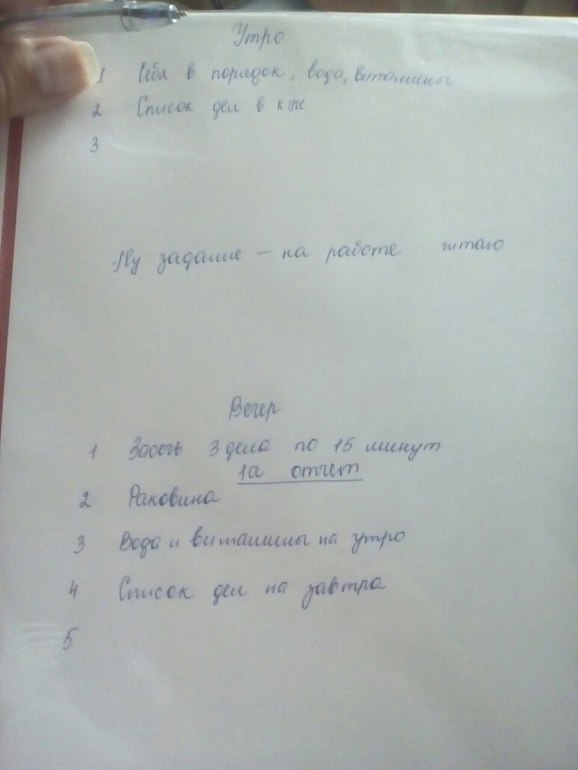 Утро
1 Себя в порядок, вода, витамины
2 Список дел в кж
3
Ну задание - на работе читаю
Вечер
1 3 дела по 15 минут
1а отчет
2 Раковина
3 Вода и витамины на утро
4 Список дел на завтра
5